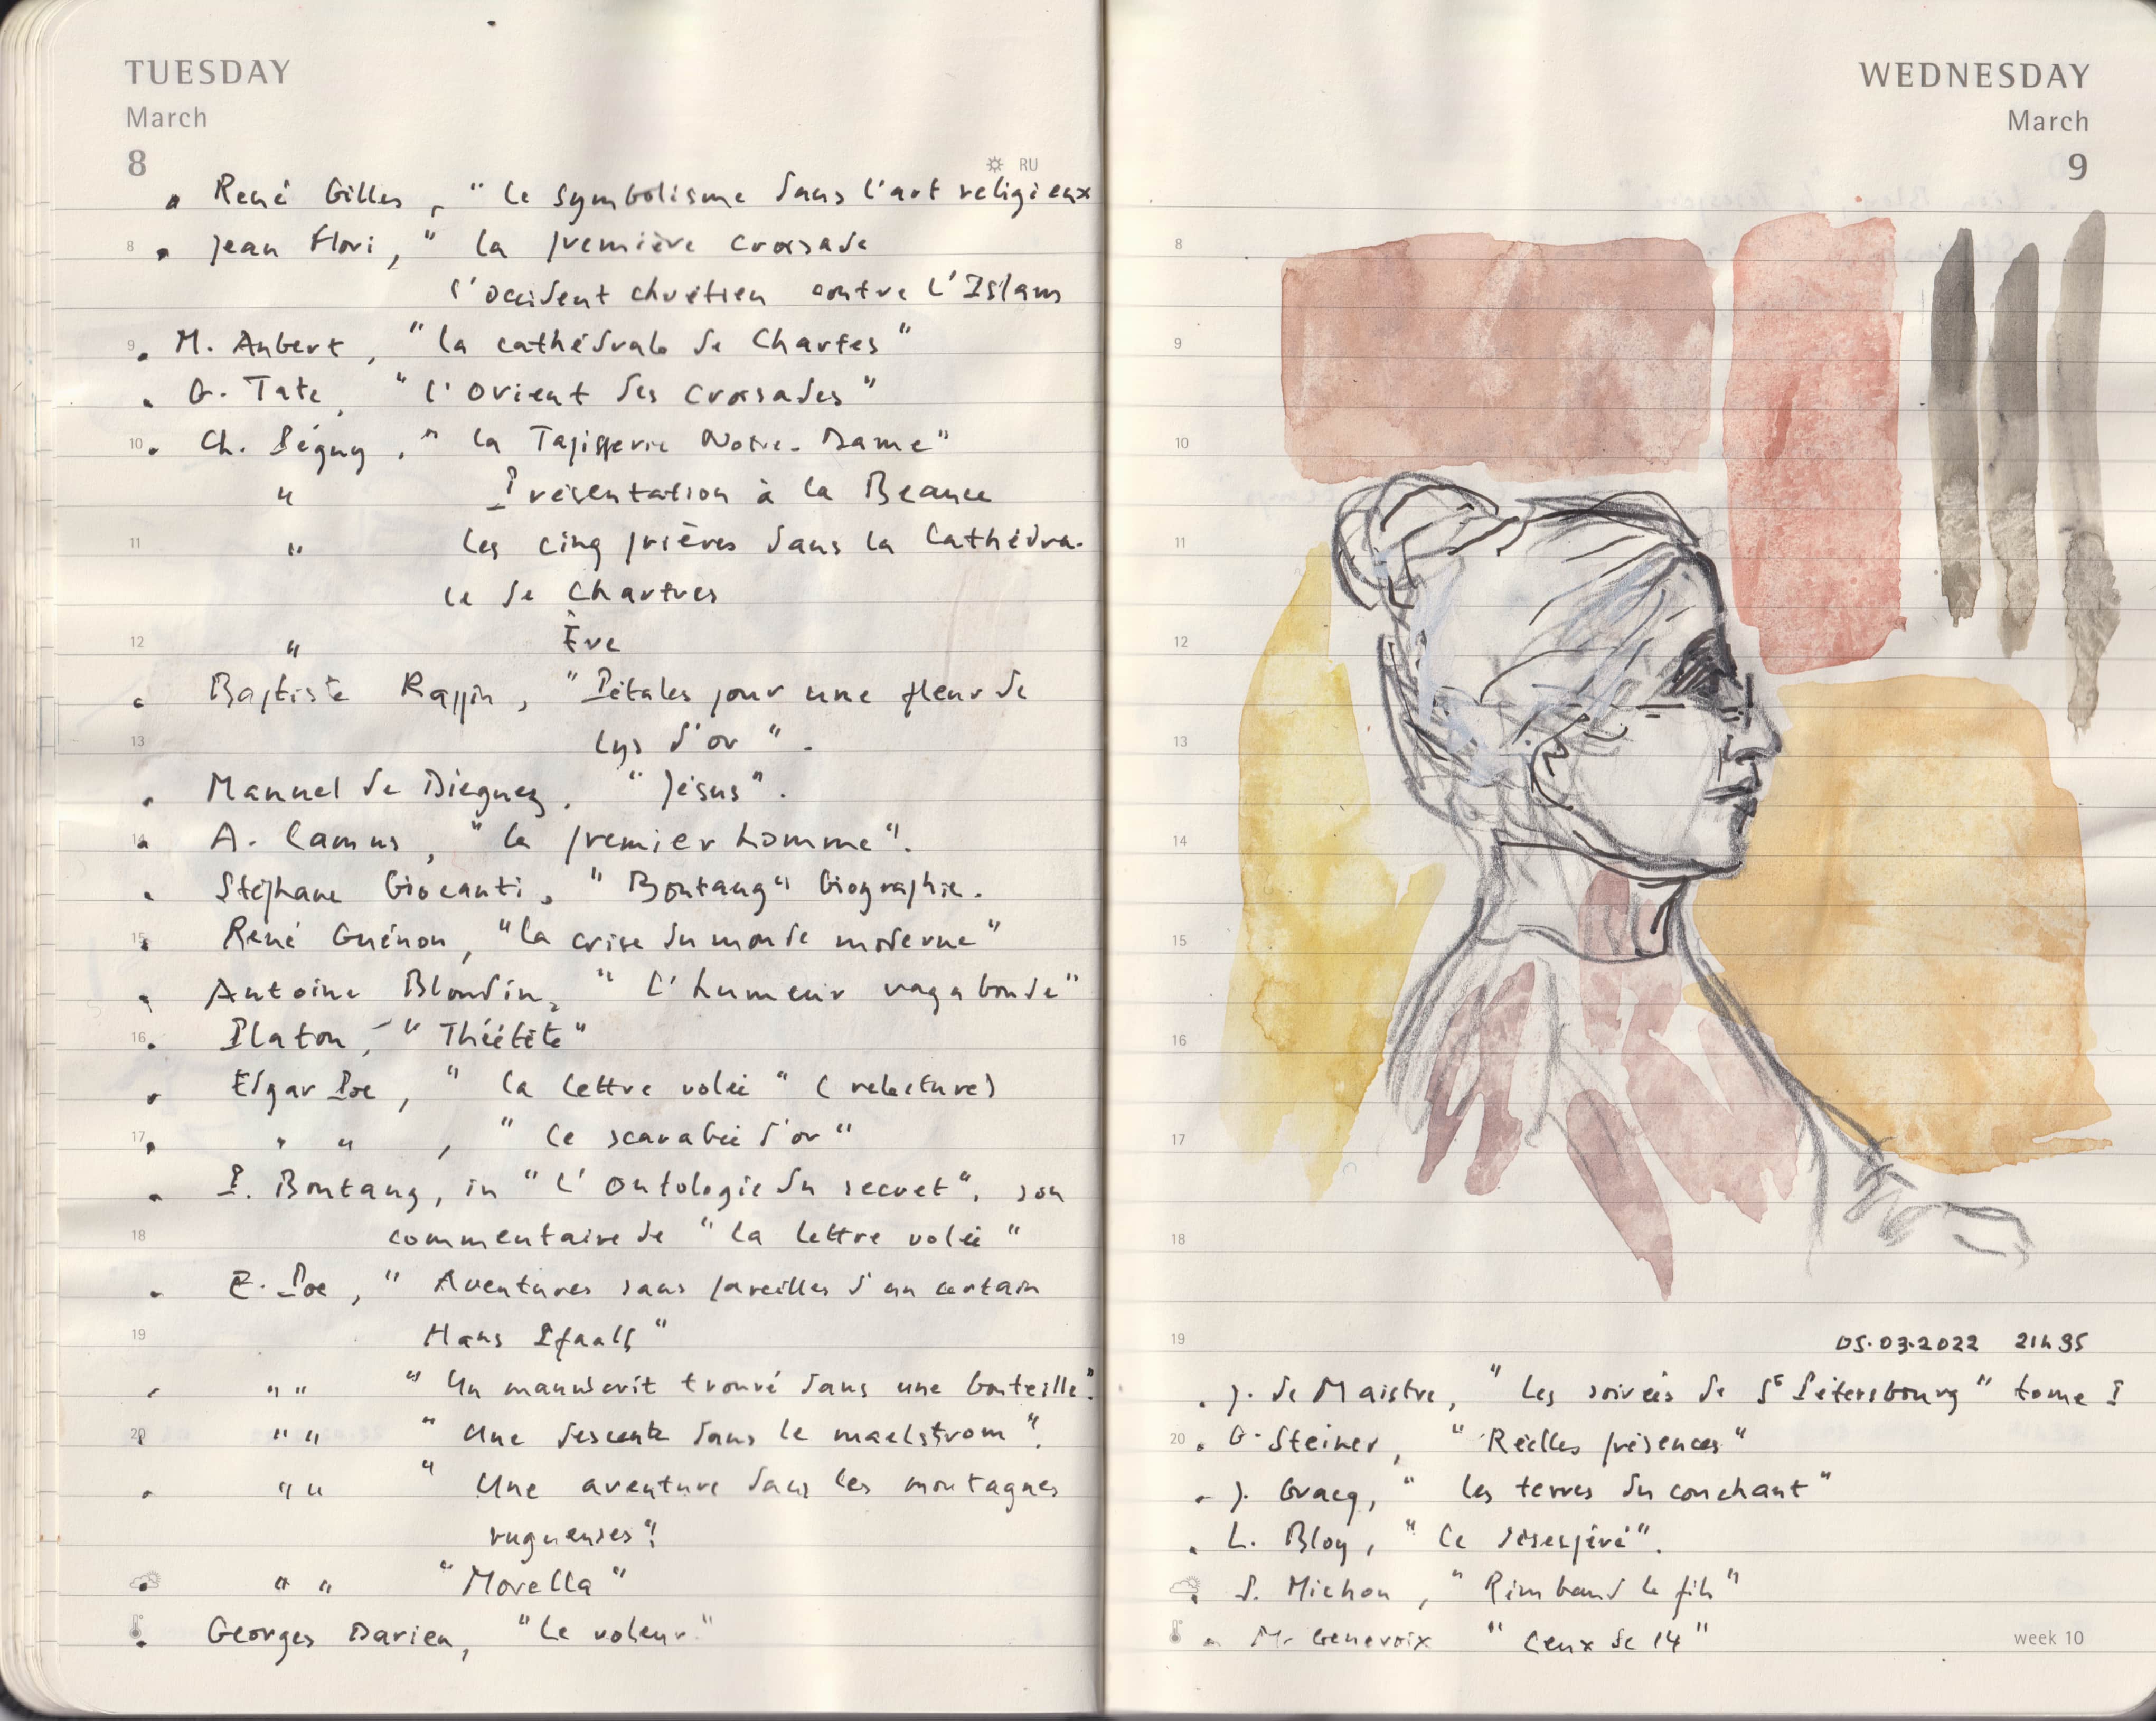 TUESDAY
March
8
RU
• René Gilles, " Le symbolisme dans l'art religieux
8 • Jean Flori, " La première croisade
l'occident chrétien contre l'Islam
9 • M. Aubert, " La cathédrale de Chartes "
• G. Tate, " L'Orient des croisades "
10 • Ch. Péguy, " La Tapisserie Notre-Dame "
" Présentation à la Beauce
11 " Les cinq prières dans la Cathédra-
le de Chartres
12 " Ève
• Baptiste Rappin, " Pétales pour une fleur de
13 lys d'or ".
• Manuel de Dieguez, " Jésus ".
14 • A. Camus, " Le premier homme ".
• Stéphane Giocanti, " Boutang " biographie.
15 • René Guénon, " La crise du monde moderne "
• Antoine Blondin, " L'humeur vagabonde "
16 • Platon, " Théétète "
• Edgar Poe, " La lettre volée " ( relecture )
17 • " " , " Le scarabée d'or "
• P. Boutang, in " L'Ontologie du secret ", son
18 commentaire de " La lettre volée "
• E. Poe, " Aventures sans pareilles d'un certain
19 Hans Pfaall "
• " " " Un manuscrit trouvé dans une bouteille ".
20 " " " Une descente dans le maelstrom ".
• " " " Une aventure dans les montagnes
rugueuses ".
• " " " Morella "
• Georges Darien, " Le voleur "
WEDNESDAY
March
9
8
9
10
11
12
13
14
15
16
17
18
19 05.03.2022 21h35
• J. de Maistre, " Les soirées de St Pétersbourg " tome I
20 • G. Steiner, " Réelles présences "
• J. Gracq, " Les terres du couchant "
• L. Bloy, " Le désespéré ".
• P. Michon, " Rimbaud le fils "
• M. Genevoix " Ceux de 14 "
week 10